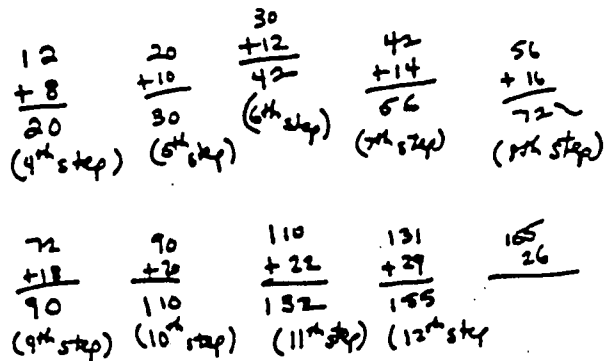 12
+ 8
20
(4th step)
20
+10
30
(5th step)
30
+12
42
(6th step)
42
+14
56
(7th step)
56
+ 16
72
(8th step)
72
+18
90
(9th step)
90
+20
110
(10th step)
110
+ 22
132
(11th step)
131
+29
155
(12th step
155
26